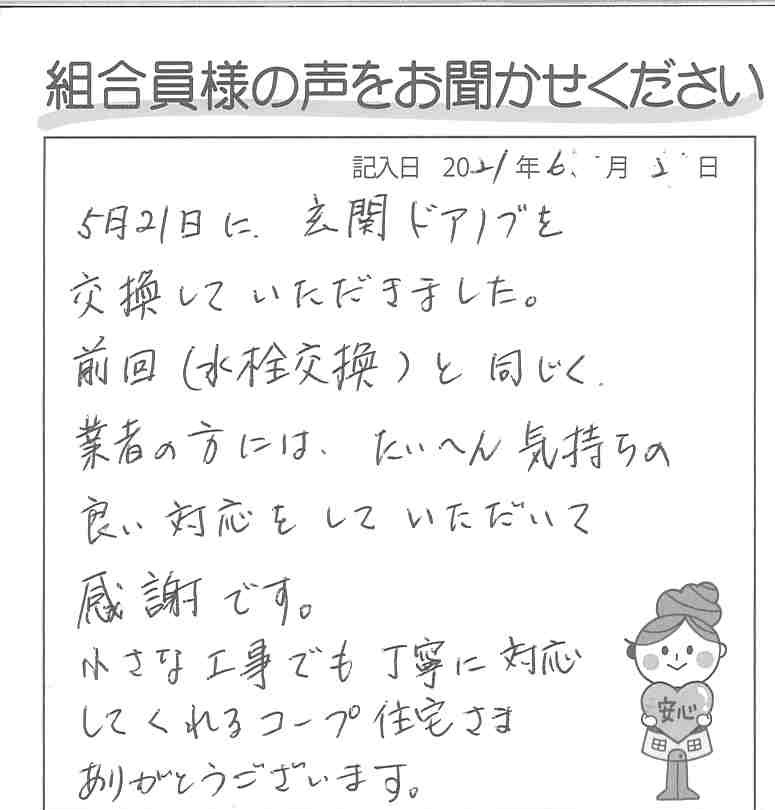 組合員様の声をお聞かせください
記入日 2021年6月1日
5月21日に、玄関ドアノブを
交換していただきました。
前回(水栓交換)と同じく、
業者の方には、たいへん気持ちの
良い対応をしていただいて
感謝です。
小さな工事でも丁寧に対応
してくれるコープ住宅さま
ありがとうございます。
安心